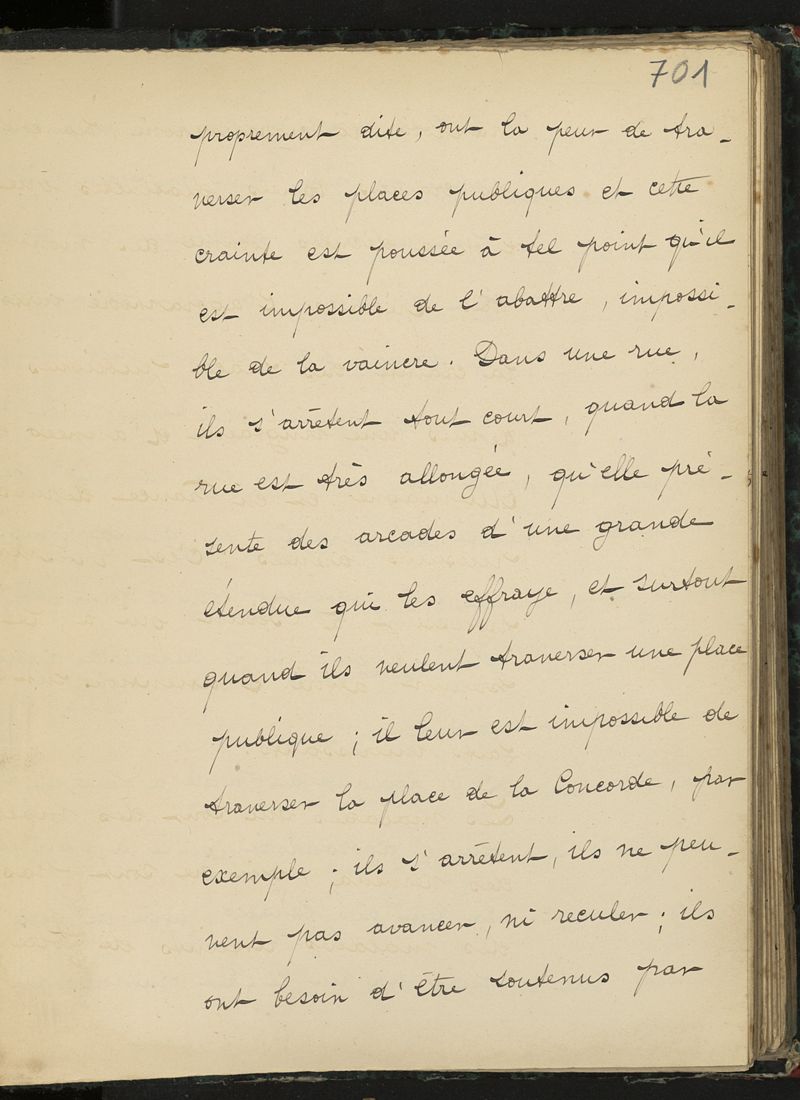 701
proprement dite, ont la peur de tra-
verser les places publiques et cette
crainte est poussée à tel point qu'il
est impossible de l'abattre, impossi-
ble de la vaincre. Dans une rue,
ils s'arrêtent tout court, quand la
rue est très allongée, qu'elle pré-
sente des arcades d'une grande
étendue qui les effraye, et surtout
quand ils veulent traverser une place
publique ; il leur est impossible de
traverser la place de la Concorde, par
exemple ; ils s'arrêtent, ils ne peu-
vent pas avancer, ni reculer ; ils
ont besoin d'être soutenus par